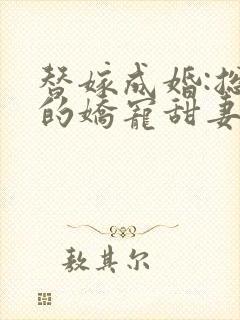 替嫁成婚:总
的娇宠甜妻
敖其尔